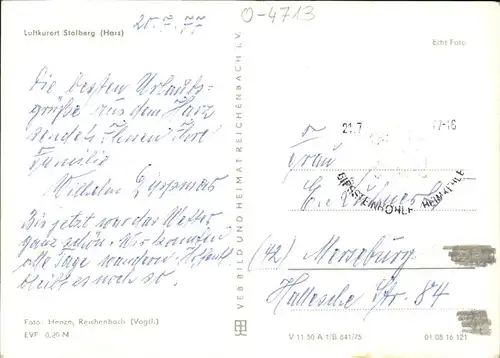 Luftkurort Stolberg (Harz)
20.7.77
O-4713
Echt Foto
Die besten Urlaubs-
grüße aus dem Harz
sendet Ihnen Ihre
Familie
Wilhelm
Bis jetzt war das Wetter
ganz schön. Wir konnten
alle Tage wandern. Hoffentl.
bleibt es noch so.
Foto: Henzn, Reichenbach (Vogtl.)
EVP 0,20 M
VEB BILD UND HEIMAT REICHENBACH i. V.
21.7
7-16
GIPSSTEINHÖHLE HEIMKEHLE
Frau
(42) Merseburg
Hallesche Str. 84
V 11 50 A 1/B 641/75
01 08 16 121